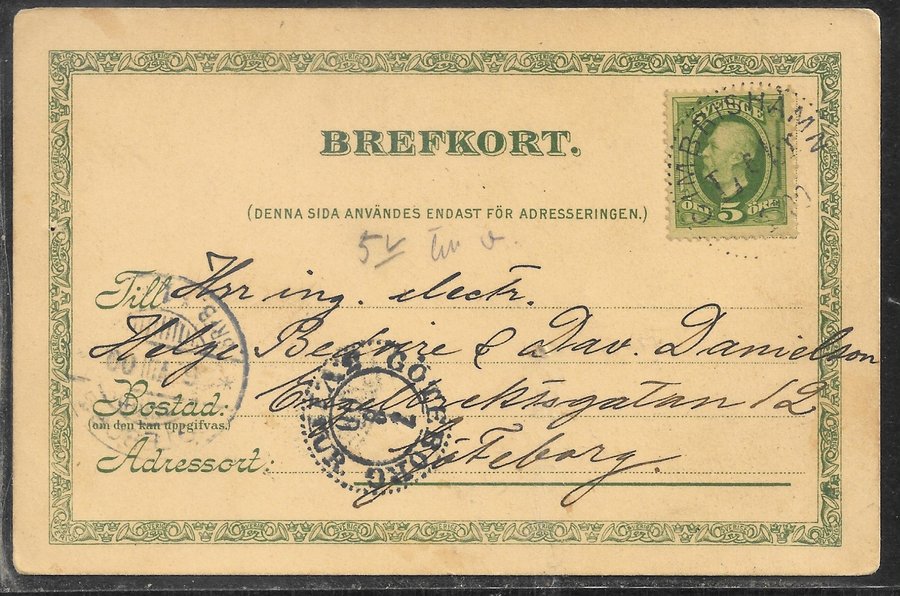 BREFKORT.
(DENNA SIDA ANVÄNDES ENDAST FÖR ADRESSERINGEN.)
SVERIGE
5 ÖRE
CIMBRISHAMN
5 tr ö.
Till Herr ing. electr.
Helge & Dav. Danielson
Bostad. Engelbrektsgatan 12
(om den kan uppgifvas.)
Adressort: Göteborg.
GÖTEBORG